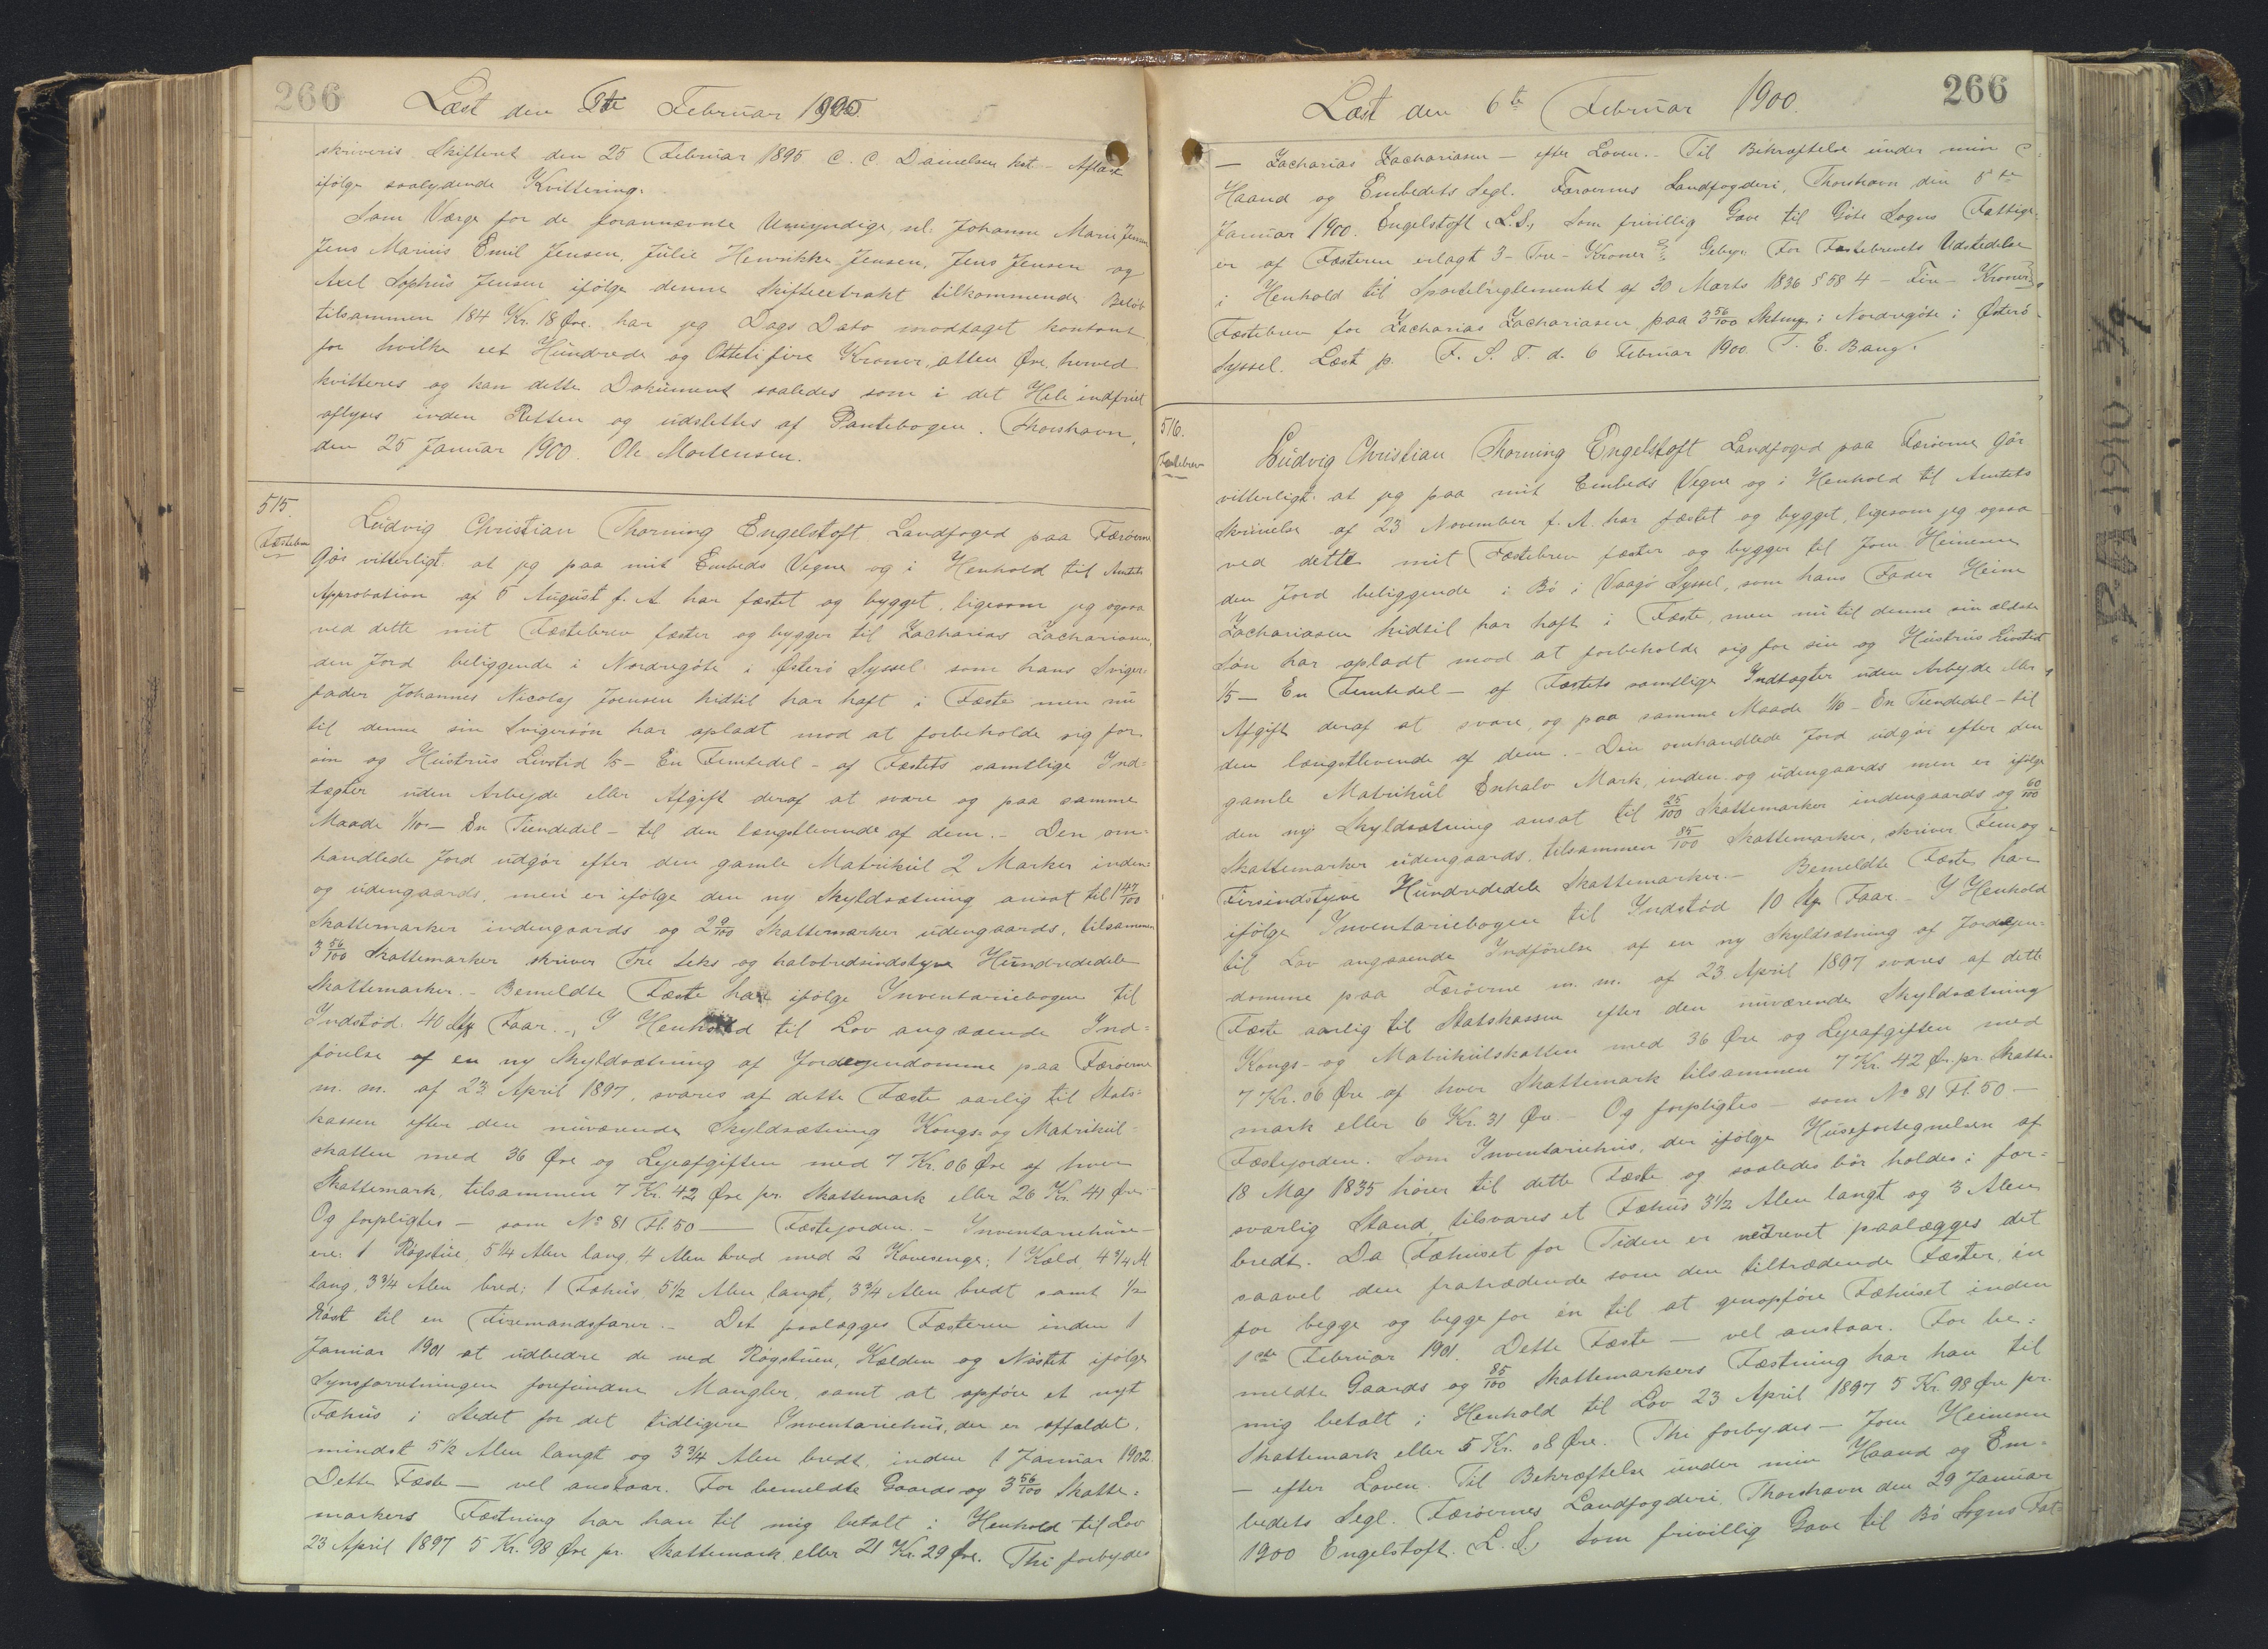 266
Læst den 6te Februar 1900.
skriveris Skifteret den 25 Februar 1895 C. C. Danielsen kst. - Aflæst
ifølge saalydende Kvittering.
Som Værge for de forannævnte Umyndige, nl. Johanne Marie Jensen
Jens Marius Emil Jensen, Julie Henrikke Jensen, Jens Jensen og
Axel Sophus Jensen ifølge denne Skifteextrakt tilkommende Beløb
tilsammen 184 Kr. 18 Øre. har jeg Dags Dato modtaget kontant
for hvilke eet Hundrede og Ottetifire Kroner, atten Øre, herved
kvitteres og kan dette Dokument saaledes som i det Hele indfriet
aflyses inden Retten og udslettes af Pantebogen. Thorshavn,
den 25 Januar 1900. Ole Mortensen.
515.
Fæstebrev
Ludvig Christian Thorning Engelstoft Landfoged paa Færøerne
Gør vitterligt: at jeg paa mit Embeds Vegne og i Henhold til Amtets
Approbation af 5 August f. A. har fæstet og bygget, ligesom jeg ogsaa
ved dette mit Fæstebrev fæster og bygger til Zacharias Zachariasen,
den Jord beliggende i Nordregøte i Østerø Syssel som hans Sviger-
fader Johannes Nicolaj Joensen hidtil har haft i Fæste men nu
til denne sin Svigersøn har opladt mod at forbeholde sig for
sin og Hustrus Livstid 1/5 - En Femtedel - af Fæstets samtlige Ind-
tægter uden Arbejde eller Afgift deraf at svare og paa samme
Maade 1/10 - En Tiendedel - til den længstlevende af dem. - Den om-
handlede Jord udgør efter den gamle Matrikul 2 Marker inden-
og udengaards, men er ifølge den ny Skyldsætning ansat til 1 47/100
Skattemarker indengaards og 2 9/100 Skattemarker udengaards, tilsammen
3 56/100 Skattemarker skriver Tre seks og halvtredsindstyve Hundrededele
Skattemarker. - Bemeldte Fæste har ifølge Inventariebogen til
Indstød 40 Stk Faar. - I Henhold til Lov angaaende Ind-
førelse af en ny Skyldsætning af Jordejendomme paa Færøerne
m. m. af 23 April 1897, svares af dette Fæste aarlig til Stats-
kassen efter den nuværende Skyldsætning Kongs- og Matrikul-
skatten med 36 Øre og Lejeafgiften med 7 Kr. 06 Øre af hver
Skattemark, tilsammen 7 Kr. 42 Øre pr. Skattemark eller 26 Kr. 41 Øre
Og forpligtes - som No 81 Fl. 50 - Fæstejorden. - Inventariehuse
ere: 1 Røgstue, 5 1/4 Alen lang, 4 Alen bred med 2 Kovesenge; 1 Kæld, 4 3/4 Al
lang, 3 3/4 Alen bred; 1 Fæhus, 5 1/2 Alen langt, 3 3/4 Alen bredt samt 1/2
Nøst til en Firemandsfarer. - Det paalægges Fæsteren inden 1
Januar 1901 at udbedre de ved Røgstuen, Kælden og Nøstet ifølge
Synsforretningen forefundne Mangler, samt at opføre et nyt
Fæhus i Stedet for det tidligere Inventariehus, der er affaldet,
mindst 5 1/2 Alen langt og 3 3/4 Alen bredt, inden 1 Januar 1902.
Dette Fæste - vel anstaar. For bemeldte Gaards og 3 56/100 Skatte-
markers Fæstning har han til mig betalt i Henhold til Lov
23 April 1897 5 Kr. 98 Øre pr. Skattemark eller 21 Kr. 29 Øre. Thi forbydes
266
Læst den 6te Februar 1900.
- Zacharias Zachariasen - efter Loven. - Til Bekræftelse under min
Haand og Embedets Segl. Færøernes Landfogderi, Thorshavn den
Januar 1900. Engelstoft L.S. Som frivillig Gave til Gøte Sogns Fattige
er af Fæsteren erlagt 3 - Tre - Kroner Gebyr For Fæstebrevets Udstedelse
i Henhold til Sportelreglementet af 30 Marts 1836 § 58 4 - Fire - Kroner
Fæstebrev for Zacharias Zachariasen paa 3 56/100 Sktmk i Nordregøte i Østerø
Syssel. Læst p. F. S. T. d. 6 Februar 1900. T. E. Bang.
516.
Fæstebrev
Ludvig Christian Thorning Engelstoft Landfoged paa Færøerne Gør
vitterligt: at jeg paa mit Embeds Vegne og i Henhold til Amtets
Skrivelse af 23 November f. A. har fæstet og bygget, ligesom jeg ogsaa
ved dette mit Fæstebrev fæster og bygger til Joen Heinesen
den Jord beliggende i Bø i Vaagø Syssel, som hans Fader Heine
Zachariasen hidtil har haft i Fæste, men nu til denne sin ældste
Søn har opladt mod at forbeholde sig for sin og Hustrus Livstid
1/5 - En Femtedel - af Fæstets samtlige Indtægter uden Arbejde eller
Afgift deraf at svare, og paa samme Maade 1/10 - En Tiendedel - til
den længstlevende af dem. - Den omhandlede Jord udgør efter den
gamle Matrikul Enhalv Mark, inden- og udengaards men er ifølge
den ny Skyldsætning ansat til 25/100 Skattemarker indengaards og 60/100
Skattemarker udengaards, tilsammen 85/100 Skattemarker, skriver Femog-
Firsindstyve Hundrededele Skattemarker. - Bemeldte Fæste har
ifølge Inventariebogen til Indstød 10 Stk Faar. - I Henhold
til Lov angaaende Indførelse af en ny Skyldsætning af Jordejen-
domme paa Færøerne m. m. af 23 April 1897 svares af dette
Fæste aarlig til Statskassen efter den nuværende Skyldsætning
Kongs- og Matrikulskatten med 36 Øre og Lejeafgiften med
7 Kr. 06 Øre af hver Skattemark tilsammen 7 Kr. 42 Ør. pr. Skatte-
mark eller 6 Kr. 31 Øre - Og forpligtes - som No 81 Fl. 50 -
Fæstejorden. Som Inventariehus, der ifølge Husefortegnelsen af
18 Maj 1835 hører til dette Fæste og saaledes bør holdes i for-
svarlig Stand, tilsvares et Fæhus 3 1/2 Alen langt og 3 Alen
bredt. Da Fæhuset for Tiden er nedrevet paalægges det
saavel den fratrædende som den tiltrædende Fæster, en
for begge og begge for én til at genopføre Fæhuset inden
1ste Februar 1901. Dette Fæste - vel anstaar. For be-
meldte Gaards og 85/100 Skattemarkers Fæstning har han til
mig betalt i Henhold til Lov 23 April 1897 5 Kr. 98 Øre pr.
Skattemark eller 5 Kr. 08 Øre. Thi forbydes - Joen Heinesen
- efter Loven. Til Bekræftelse under min Haand og Em-
bedets Segl. Færøernes Landfogderi, Thorshavn den 29 Januar
1900 Engelstoft. L.S. Som frivillig Gave til Bø Sogns Fat-